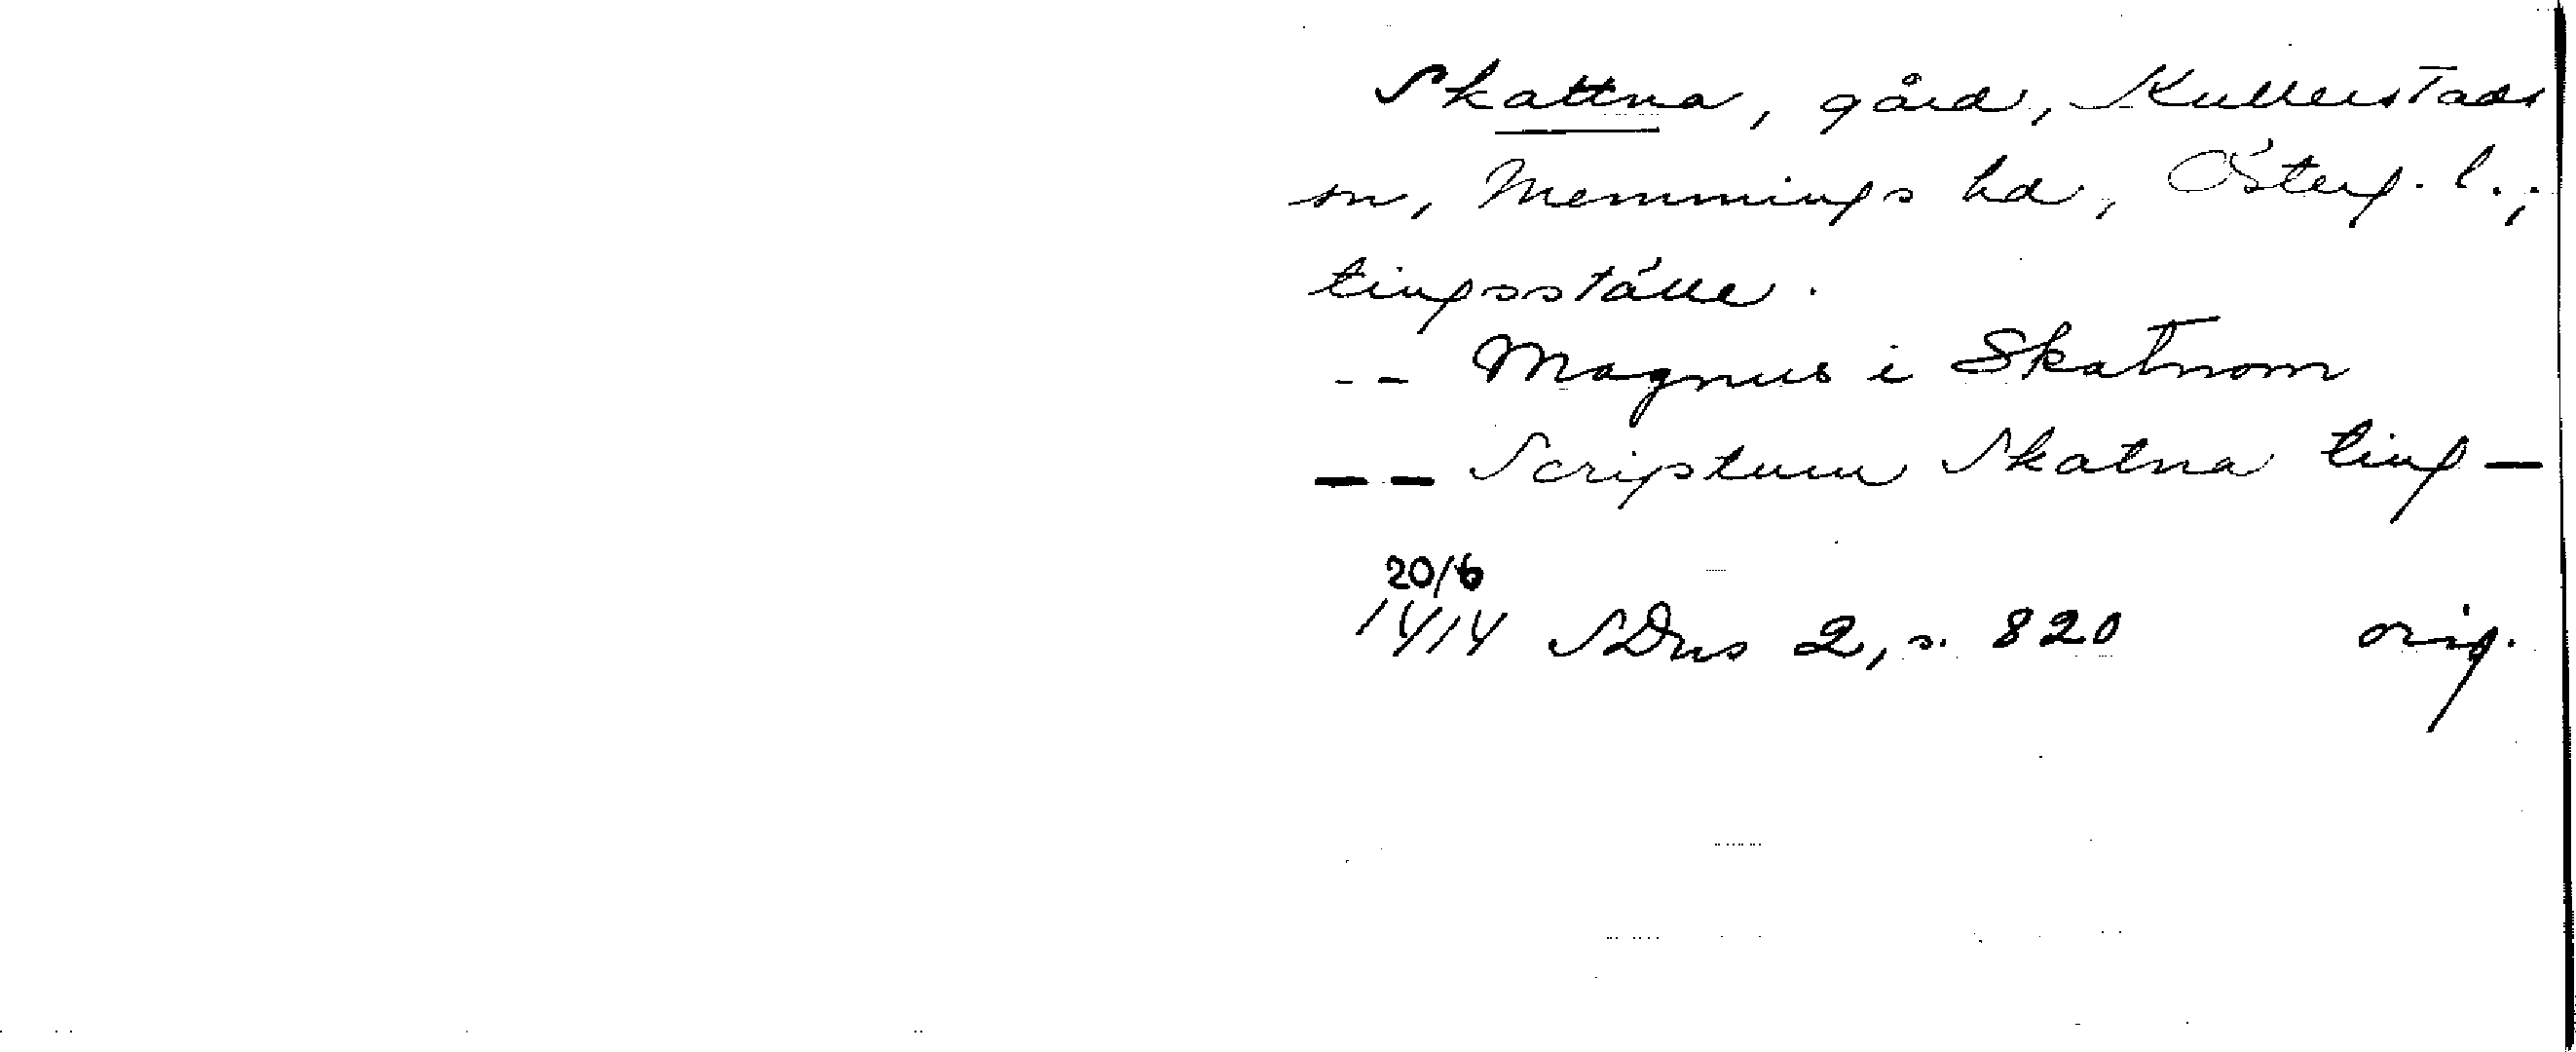 Skattna, gård, Kullerstads
sn, Memmings hd, Österg. l.,
tingsställe.
-- Magnus i Skatnom
-- Scriptum Skatna ting -
20/6
1414 SDns 2, s. 820 orig.